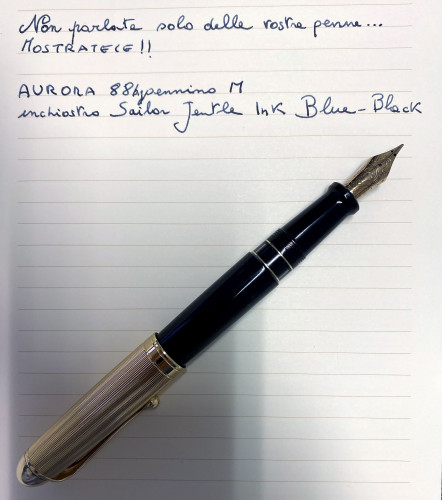 Non parlate solo delle vostre penne...
MOSTRATECE!!
AURORA 88 pennino M
inchiostro Sailor Jentle Ink Blue-Black